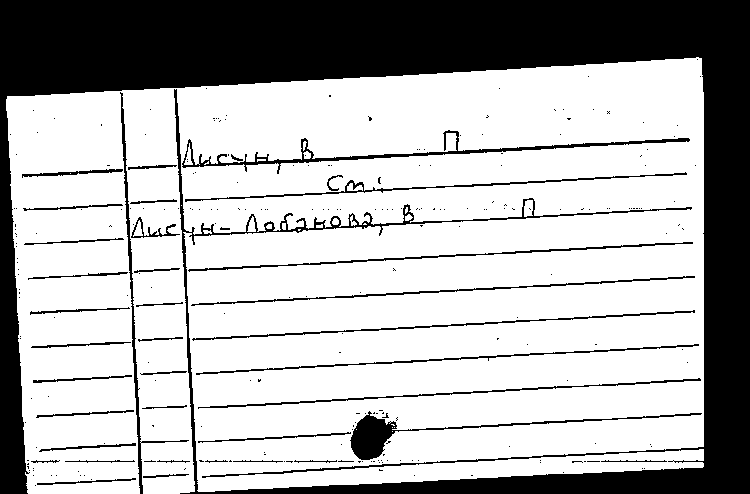 Лисун, В П
См:
Лисун-Лобанова, В. П